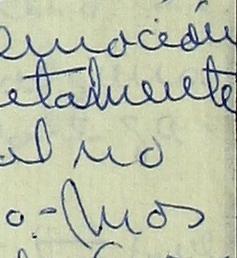 emoción
etamente
al no
o.- Mos